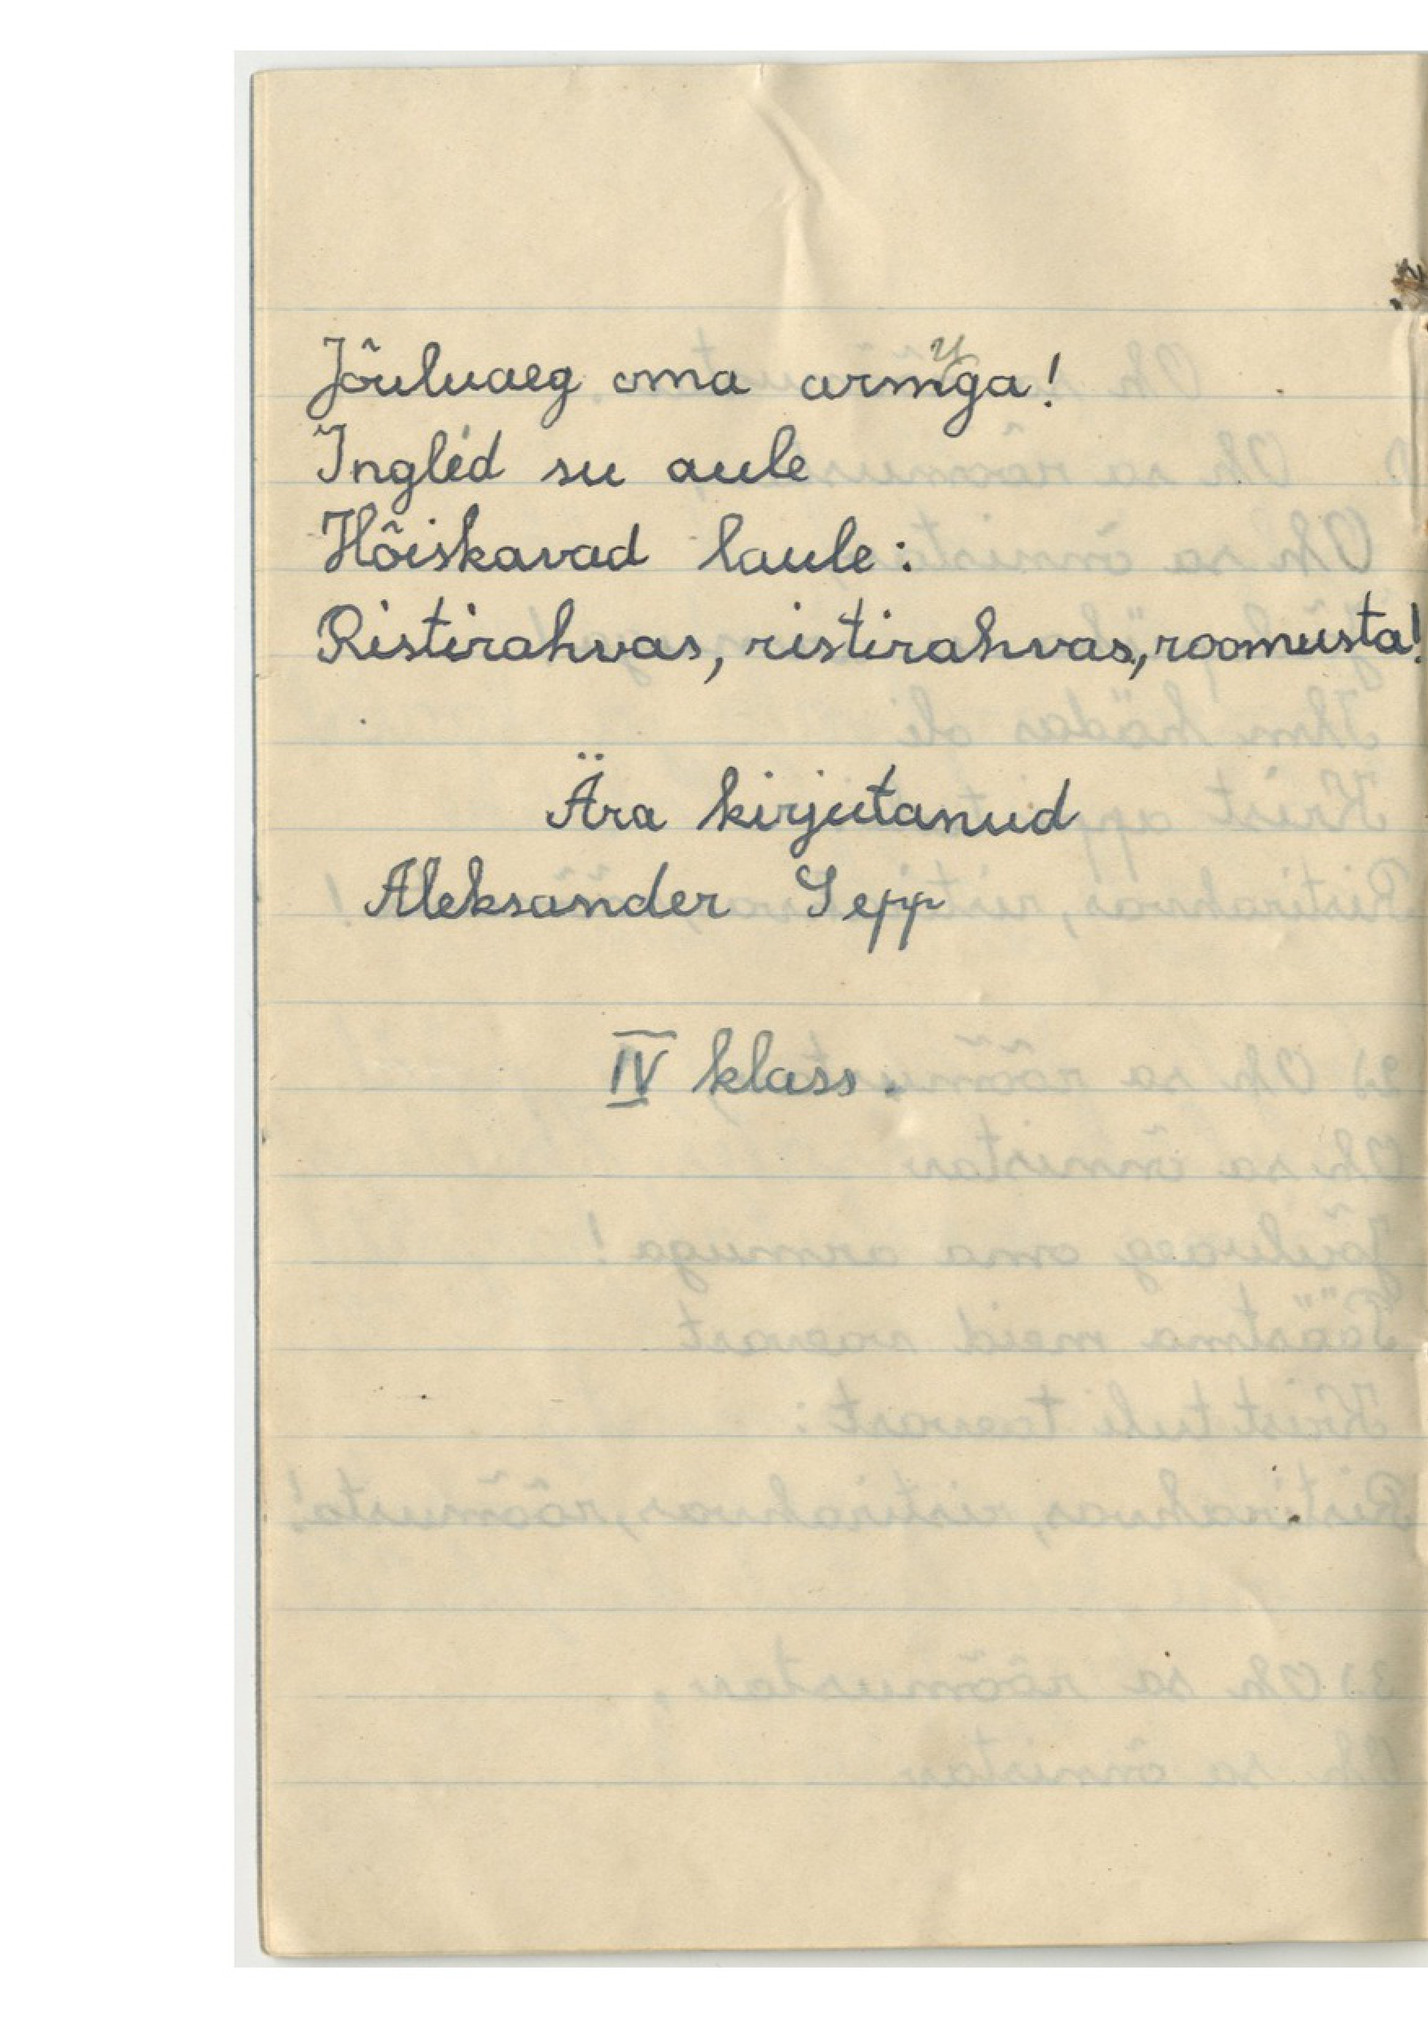 Jõuluaeg oma armuga!
Inglid su aule
Hõiskavad laule:
Ristirahvas, ristirahvas, roomusta!
Ära kirjutanud
Aleksander Sepp
IV klass.